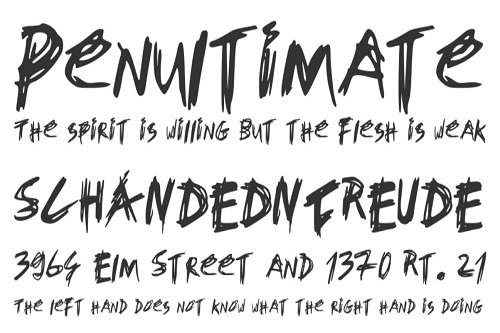 PeNUlTiMATe
The SPiRiT iS WilliNG BUT THE FlESH iS WEAK
SCHANDEDNFREUDE
3964 ElM STREET AND 1370 RT. 21
THE lEFT HAND DOES NOT KNOW WHAT THE RiGHT HAND iS DOiNG